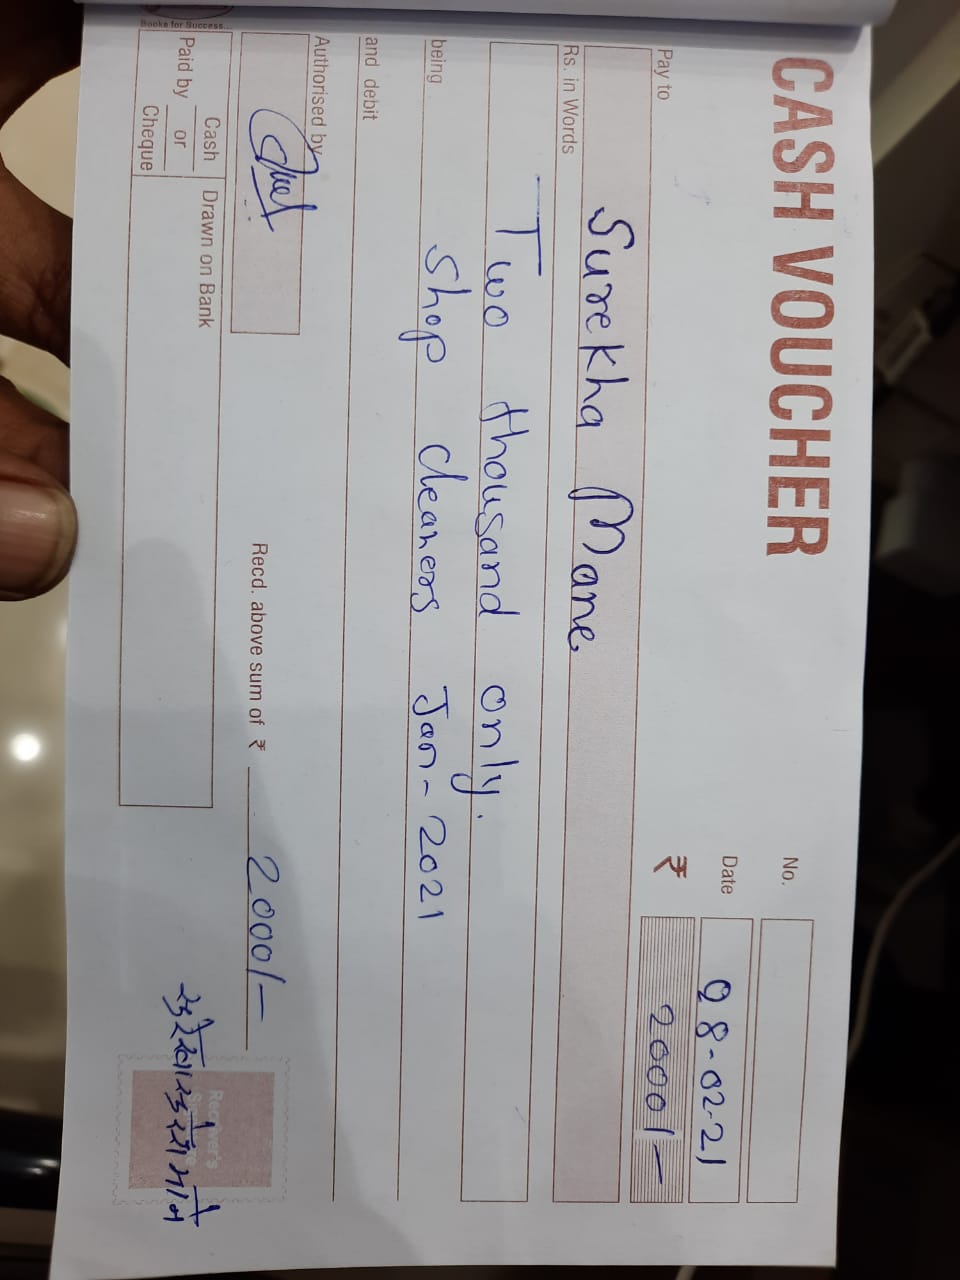 CASH VOUCHER
No.
Date 08-02-21
₹ 2000/-
Pay to
Surekha Mane
Rs. in Words
Two thousand only.
being Shop cleaners Jan-2021
and debit
Authorised by
Recd. above sum of ₹ 2000/-
Paid by Cash or Cheque
Drawn on Bank
Receiver's
Books for Success...